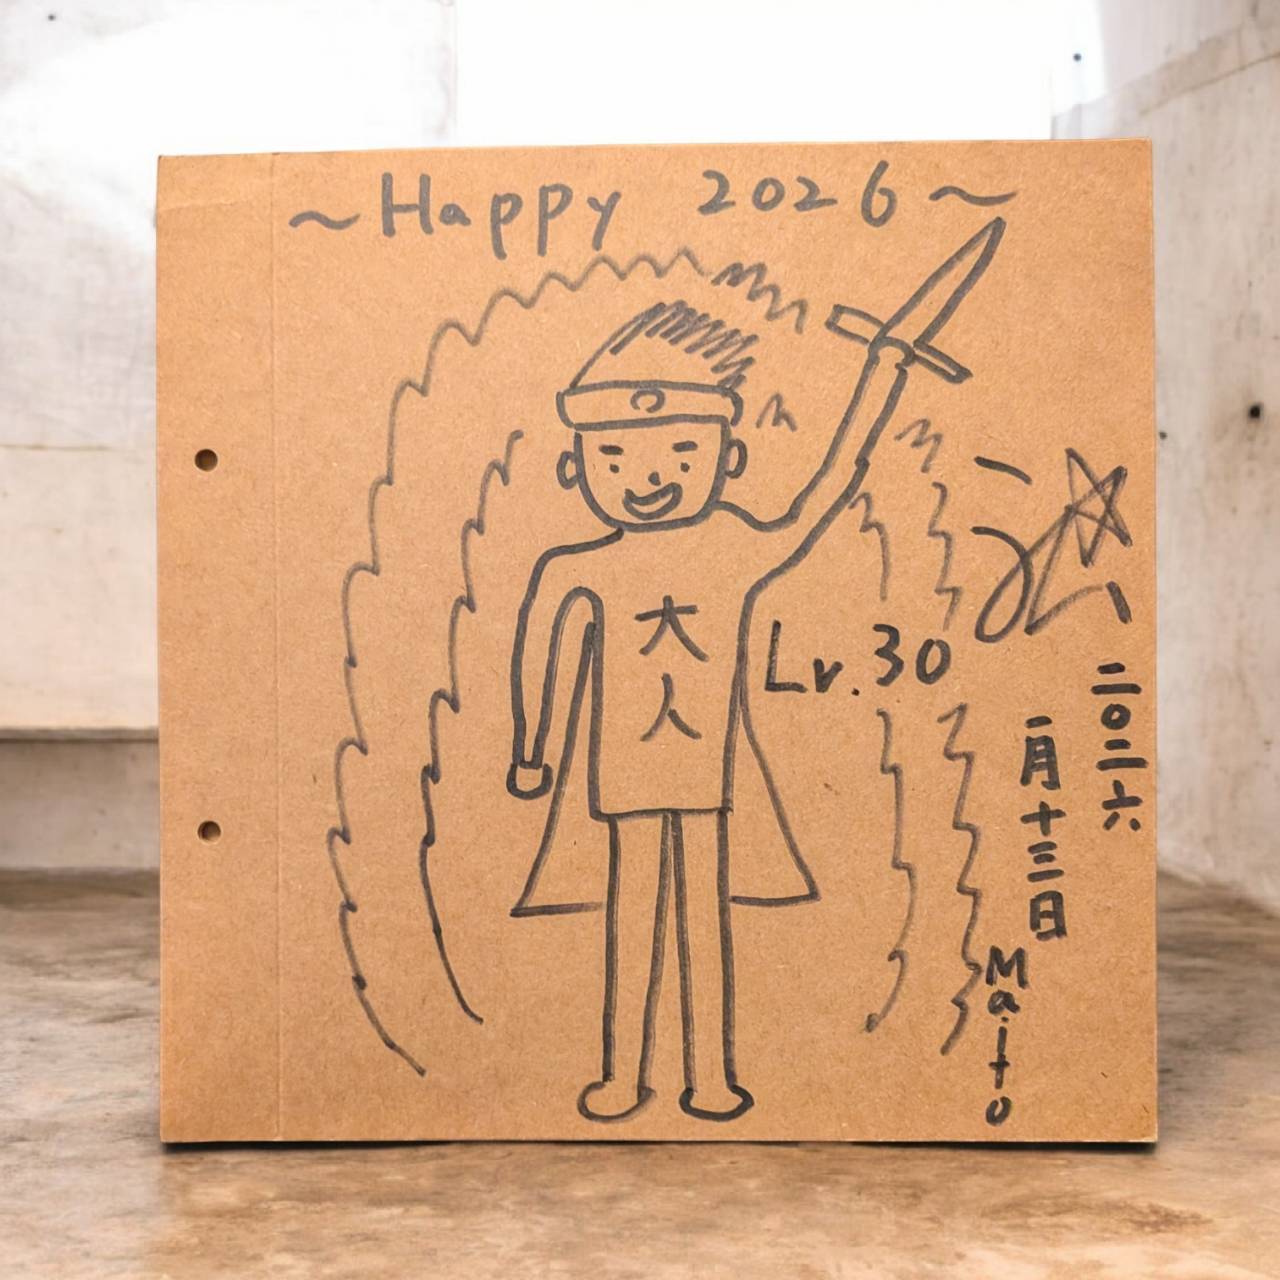 ~Happy 2026~
大人
Lv.30
二〇二六
一月十三日
Maito